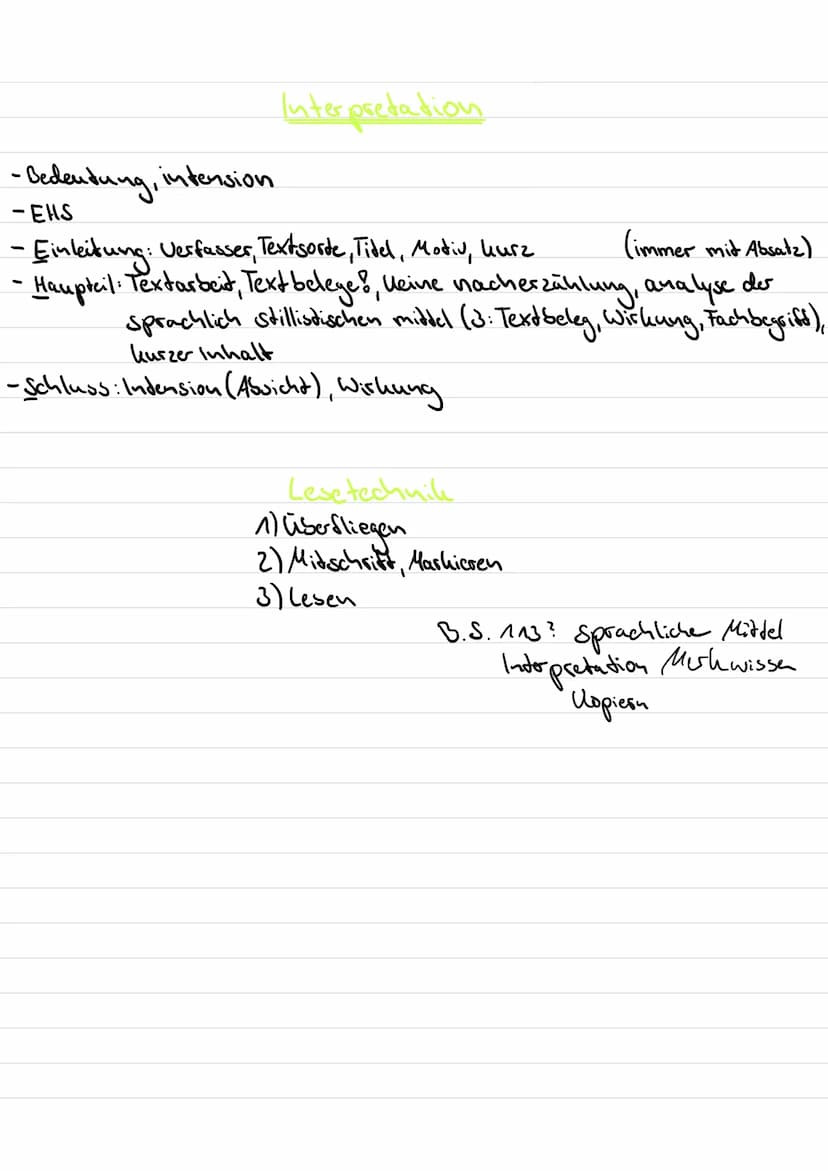 Interpretation
- Bedeutung, intension
- EHS
- Einleitung: Verfasser, Textsorte, Titel, Motiv, kurz (immer mit Absatz)
- Haupteil: Textarbeit, Textbelege!, keine nacherzählung, analyse der
sprachlich stillistischen mittel (3: Textbeleg, Wirkung, Fachbegriff),
kurzer Inhalt
- Schluss: Indension (Absicht), Wirkung
Lesetechnik
1) Überfliegen
2) Mitschrift, Markieren
3) Lesen
B.S. 113? Sprachliche Mittel
Interpretation Merkwissen
kopiern